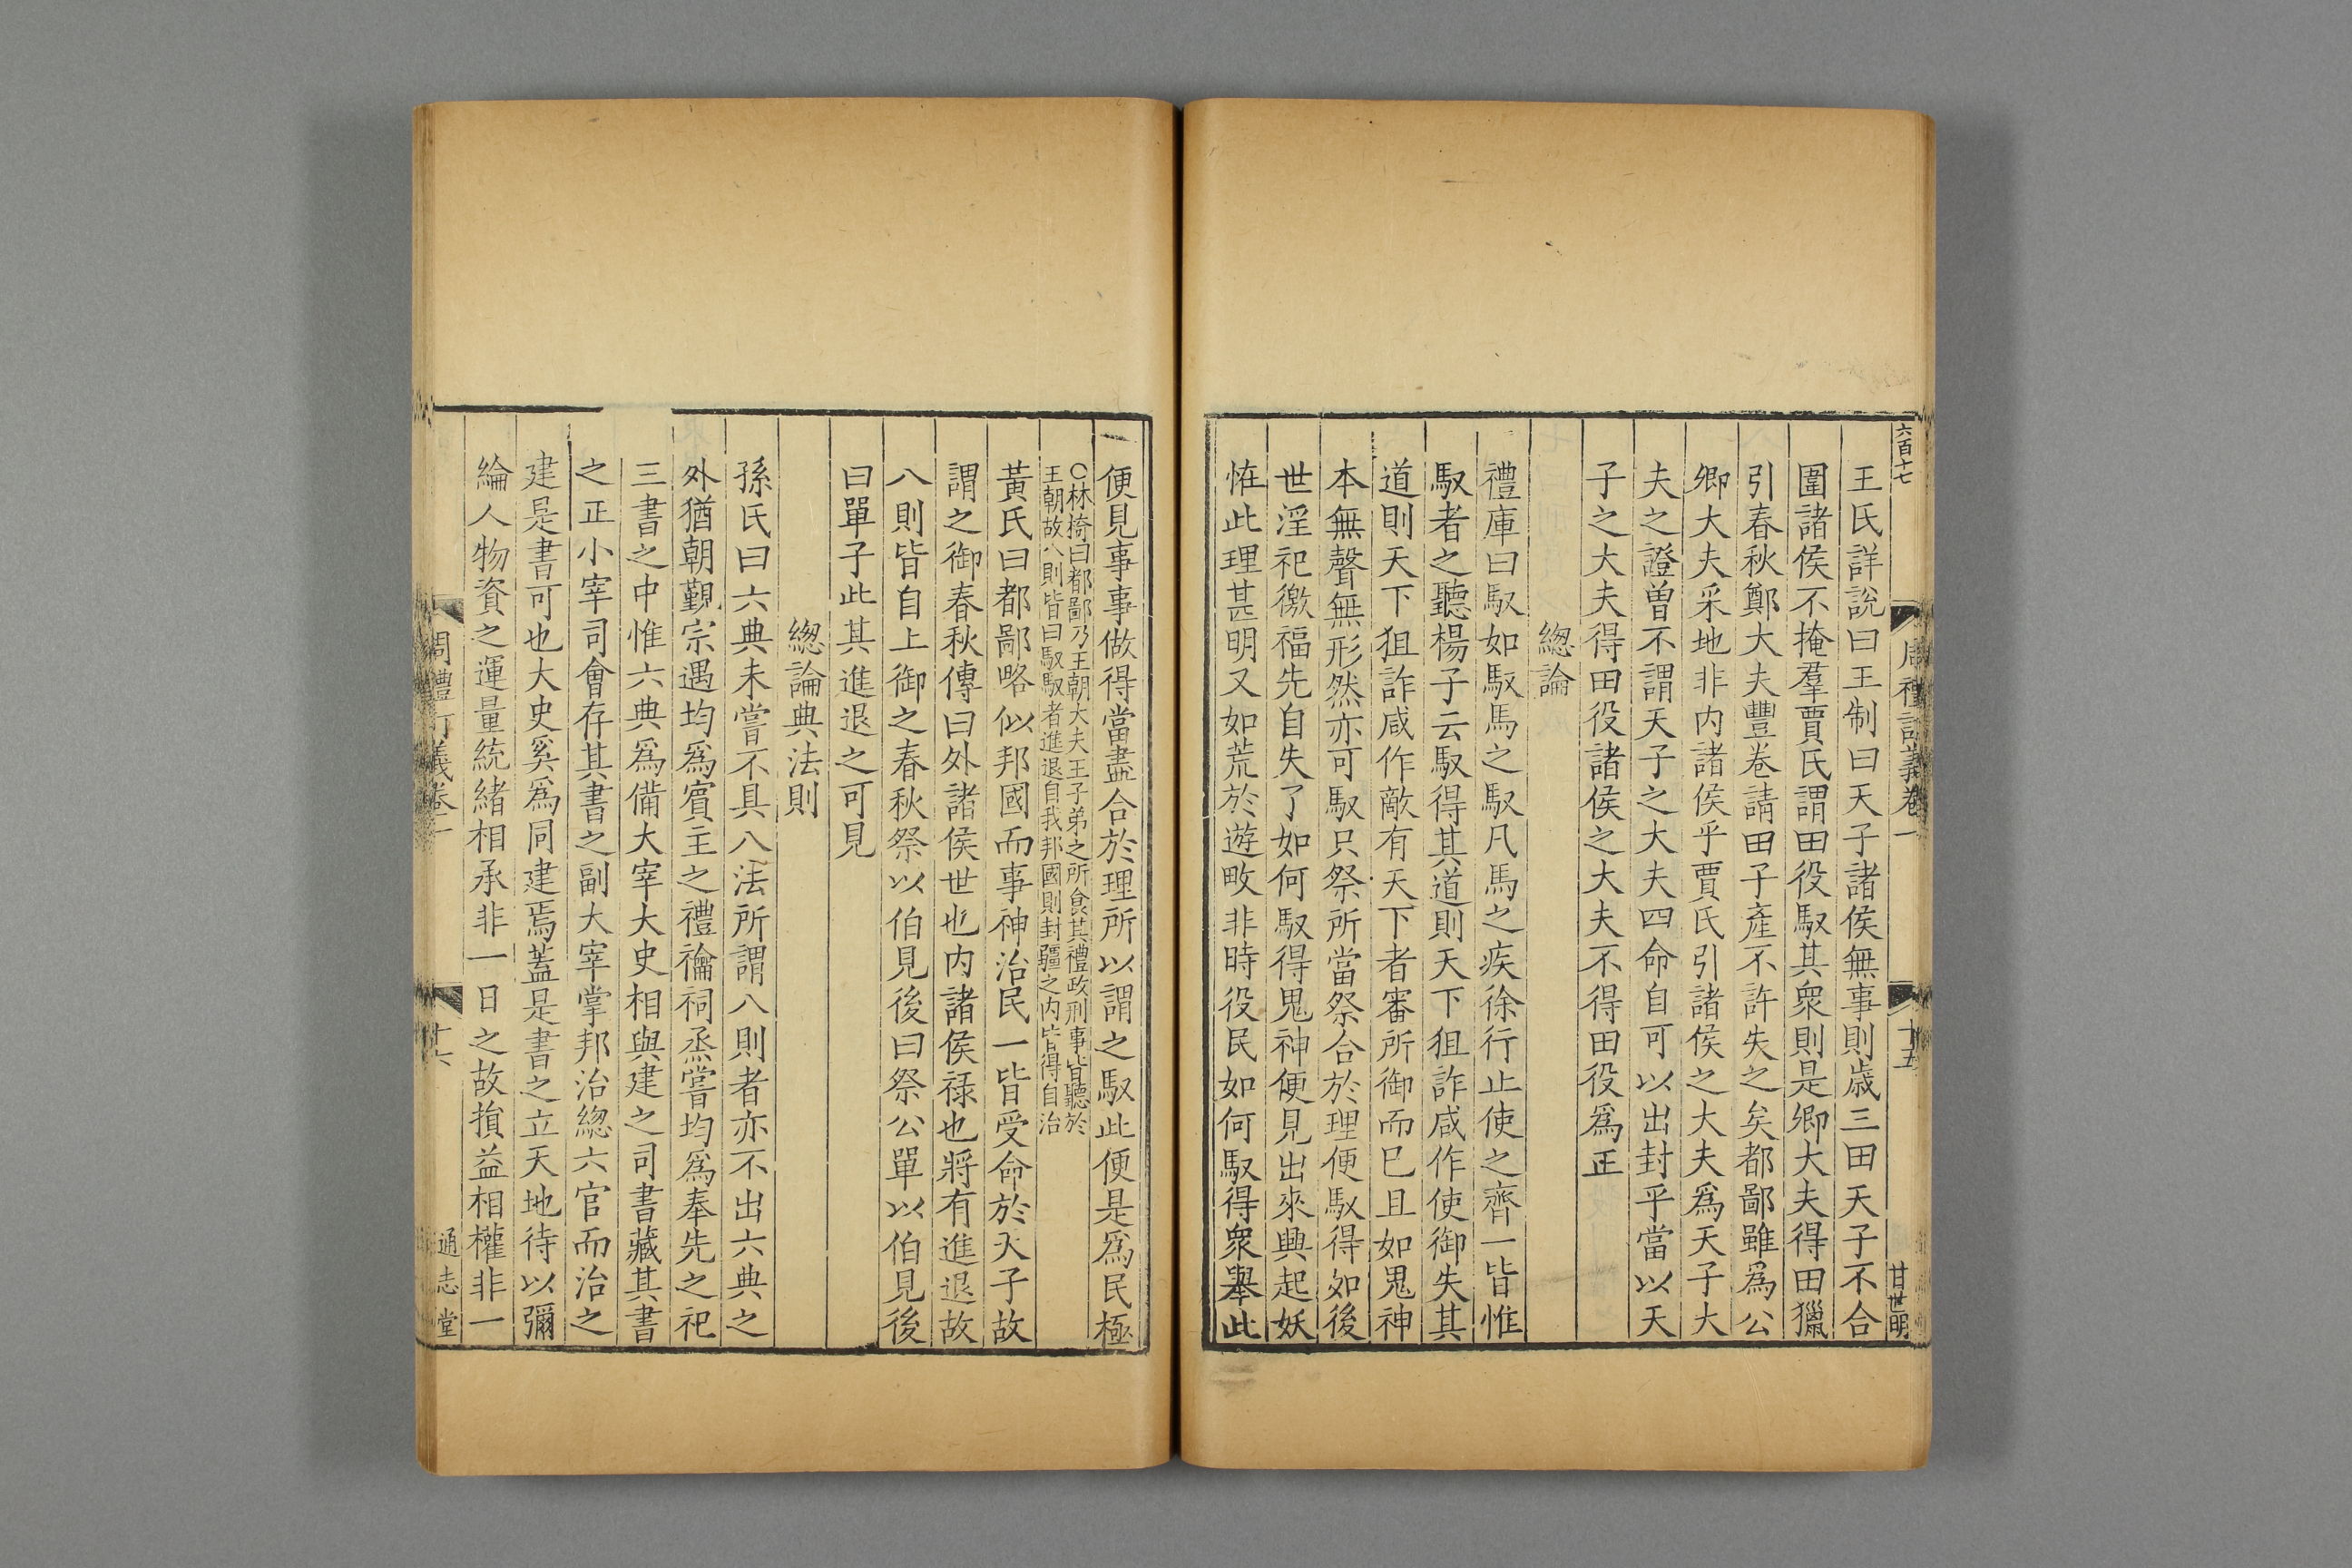 六百十七
周禮訂義卷一
十五
甘世明
王氏詳說曰王制曰天子諸侯無事則歲三田天子不合
圍諸侯不掩羣賈氏謂田役馭其衆則是卿大夫得田獵
引春秋鄭大夫豐卷請田子產不許失之矣都鄙雖爲公
卿大夫采地非内諸侯乎賈氏引諸侯之大夫爲天子大
夫之證曾不謂天子之大夫四命自可以出封乎當以天
子之大夫得田役諸侯之大夫不得田役爲正
緫論
禮庫曰馭如馭馬之馭凡馬之疾徐行止使之齊一皆惟
馭者之聽楊子云馭得其道則天下狙詐咸作使御失其
道則天下狙詐咸作敵有天下者審所御而已且如鬼神
本無聲無形然亦可馭只祭所當祭合於理便馭得如後
世淫祀徼福先自失了如何馭得鬼神便見出來興起妖
恠此理甚明又如荒於遊畋非時役民如何馭得衆舉此
便見事事做得當盡合於理所以謂之馭此便是爲民極
○林椅曰都鄙乃王朝大夫王子弟之所食其禮政刑事皆聽於
王朝故八則皆曰馭馭者進退自我邦國則封疆之内皆得自治
黃氏曰都鄙略似邦國而事神治民一皆受命於天子故
謂之御春秋傳曰外諸侯世也内諸侯祿也將有進退故
八則皆自上御之春秋祭以伯見後曰祭公單以伯見後
曰單子此其進退之可見
緫論典法則
孫氏曰六典未嘗不具八法所謂八則者亦不出六典之
外猶朝覲宗遇均爲賓主之禮禴祠烝嘗均爲奉先之祀
三書之中惟六典爲備大宰大史相與建之司書藏其書
之正小宰司會存其書之副大宰掌邦治緫六官而治之
建是書可也大史奚爲同建焉蓋是書之立天地待以彌
綸人物資之運量統緒相承非一日之故損益相權非一
周禮訂義卷一
十六
通志堂